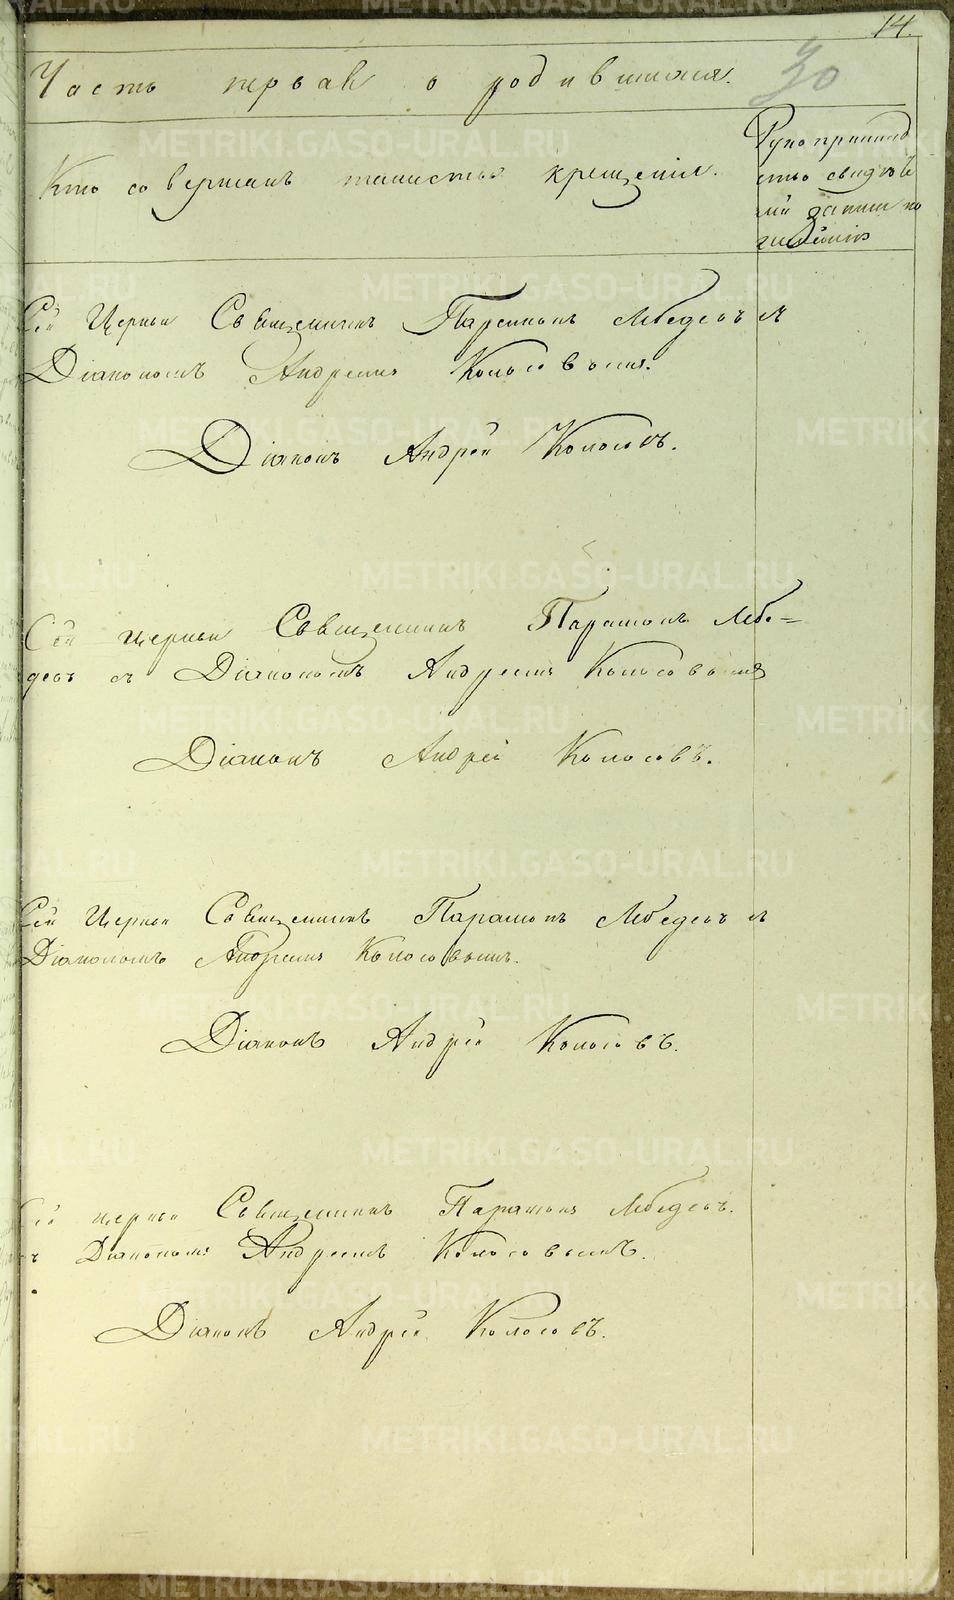 14.
30
Часть первая о родившихся.
Кто совершалъ таинство крещенія.
Рукоприклад
ство свидѣте
лей записи по
желанію
Сей Церкви Священникъ Парамонъ Лебедевъ съ
Діакономъ Андреемъ Колосовымъ.
Діаконъ Андрей Колосовъ.
Сей церкви Священникъ Парамонъ Лебе=
девъ съ Діакономъ Андреемъ Колосовымъ
Діаконъ Андрей Колосовъ.
Сей Церкви Священникъ Парамонъ Лебедевъ съ
Діакономъ Андреемъ Колосовымъ.
Діаконъ Андрей Колосовъ.
Сей церкви Священникъ Парамонъ Лебедевъ.
съ Діакономъ Андреемъ Колосовымъ.
Діаконъ Андрей Колосовъ.
METRIKI.GASO-URAL.RU